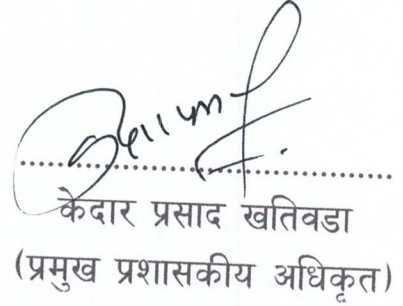 केदार प्रसाद खतिवडा
(प्रमुख प्रशासकीय अधिकृत)